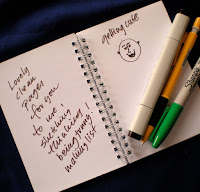 Lovely
clean
Pages
for you
to use!
sketching
thinking!
being funny
making list
getting cute
Sharpie